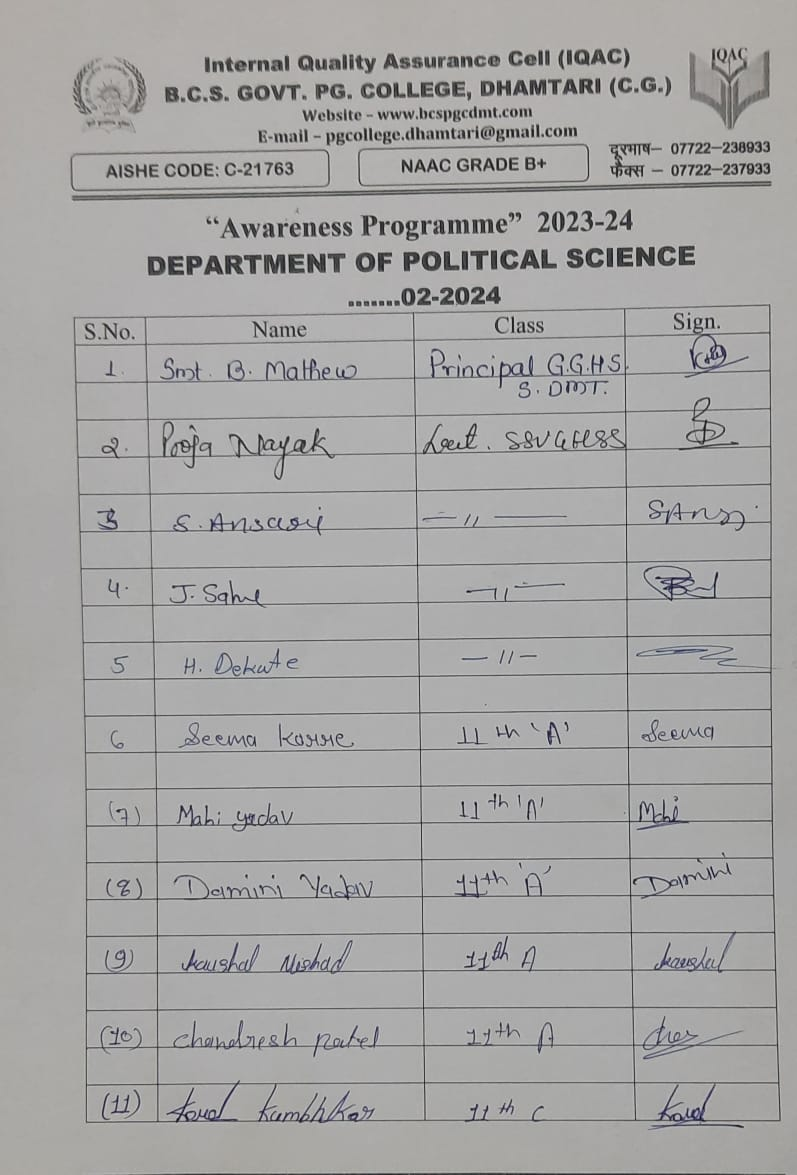 Internal Quality Assurance Cell (IQAC)
IQAC
B.C.S. GOVT. PG. COLLEGE, DHAMTARI (C.G.)
Website – www.bcspgcdmt.com
E-mail – pgcollege.dhamtari@gmail.com
दूरभाष– 07722–238933
AISHE CODE: C-21763 NAAC GRADE B+ फैक्स – 07722–237933
“Awareness Programme” 2023-24
DEPARTMENT OF POLITICAL SCIENCE
.......02-2024
S.No. Name Class Sign.
1. Smt. B. Mathew Principal G.G.H.S.
S. DMT.
2. Pooja Nayak Lect.
3 S. Ansari —〃— SAns
4. J. Sahu —〃—
5 H. Dekate —〃—
6 Seema Kosre 11th 'A' Seema
(7) Mahi yadav 11th 'A' Mahi
(8) Damini Yadav 11th 'A' Damini
(9) kaushal Nishad 11th A kaushal
(10) Chandresh patel 11th A
(11) Kumbhkar 11th C